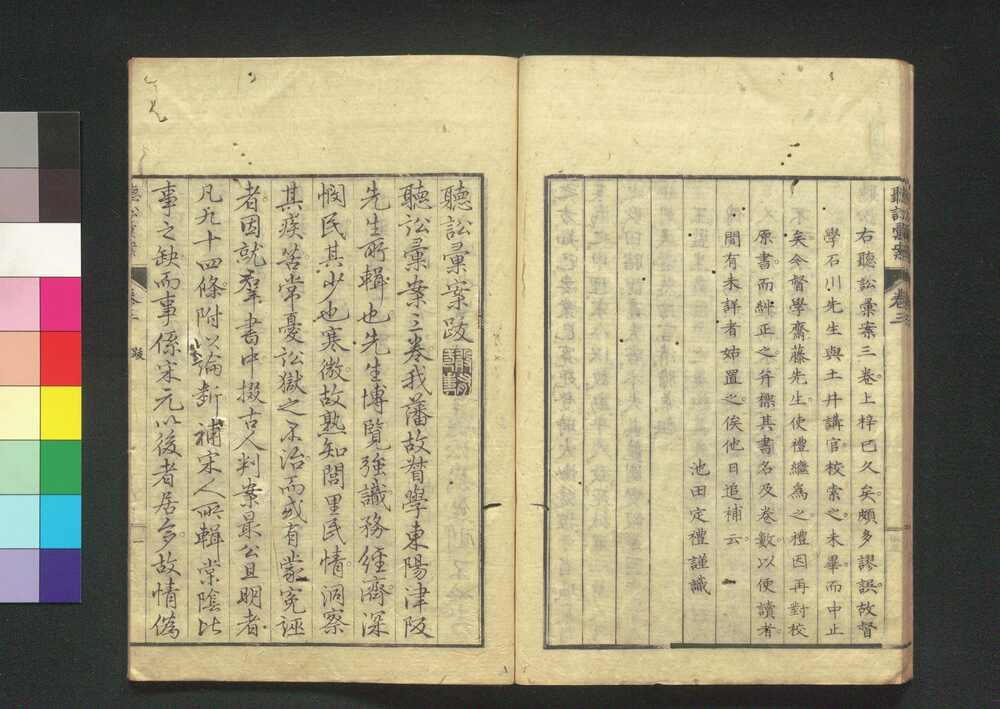 聽訟彙案 卷三
右聽訟彙案三卷。上梓已久矣。頗多謬誤。故督
學石川先生與土井講官校索之。未畢而中止
矣。今督學齋藤先生使禮繼為之。禮因再對校
原書而紕正之。并標其書名及卷數。以便讀者。
間有未詳者。姑置之。俟他日追補云。
池田定禮謹識
聽訟彙案跋
聽訟彙案三卷我藩故督學東陽津阪
先生所輯也先生博覽強識務經濟深
憫民其少也寒微故熟知閭里民情洞察
其疾苦常憂訟獄之不治而或有蒙冤誣
者。因就羣書中掇古人判案最公且明者
凡九十四條。附以論斷補宋人所輯棠陰比
事之缺。而事係宋元以後者居多。故情偽
聽訟彙案 卷三 跋